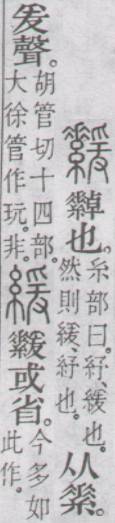 𦅻䋬也。糸部曰。紓、緩也。然則緩、紓也。从素。
爰聲。胡管切十四部。大徐管作玩。非。緩𦅻或省。今多如此作。